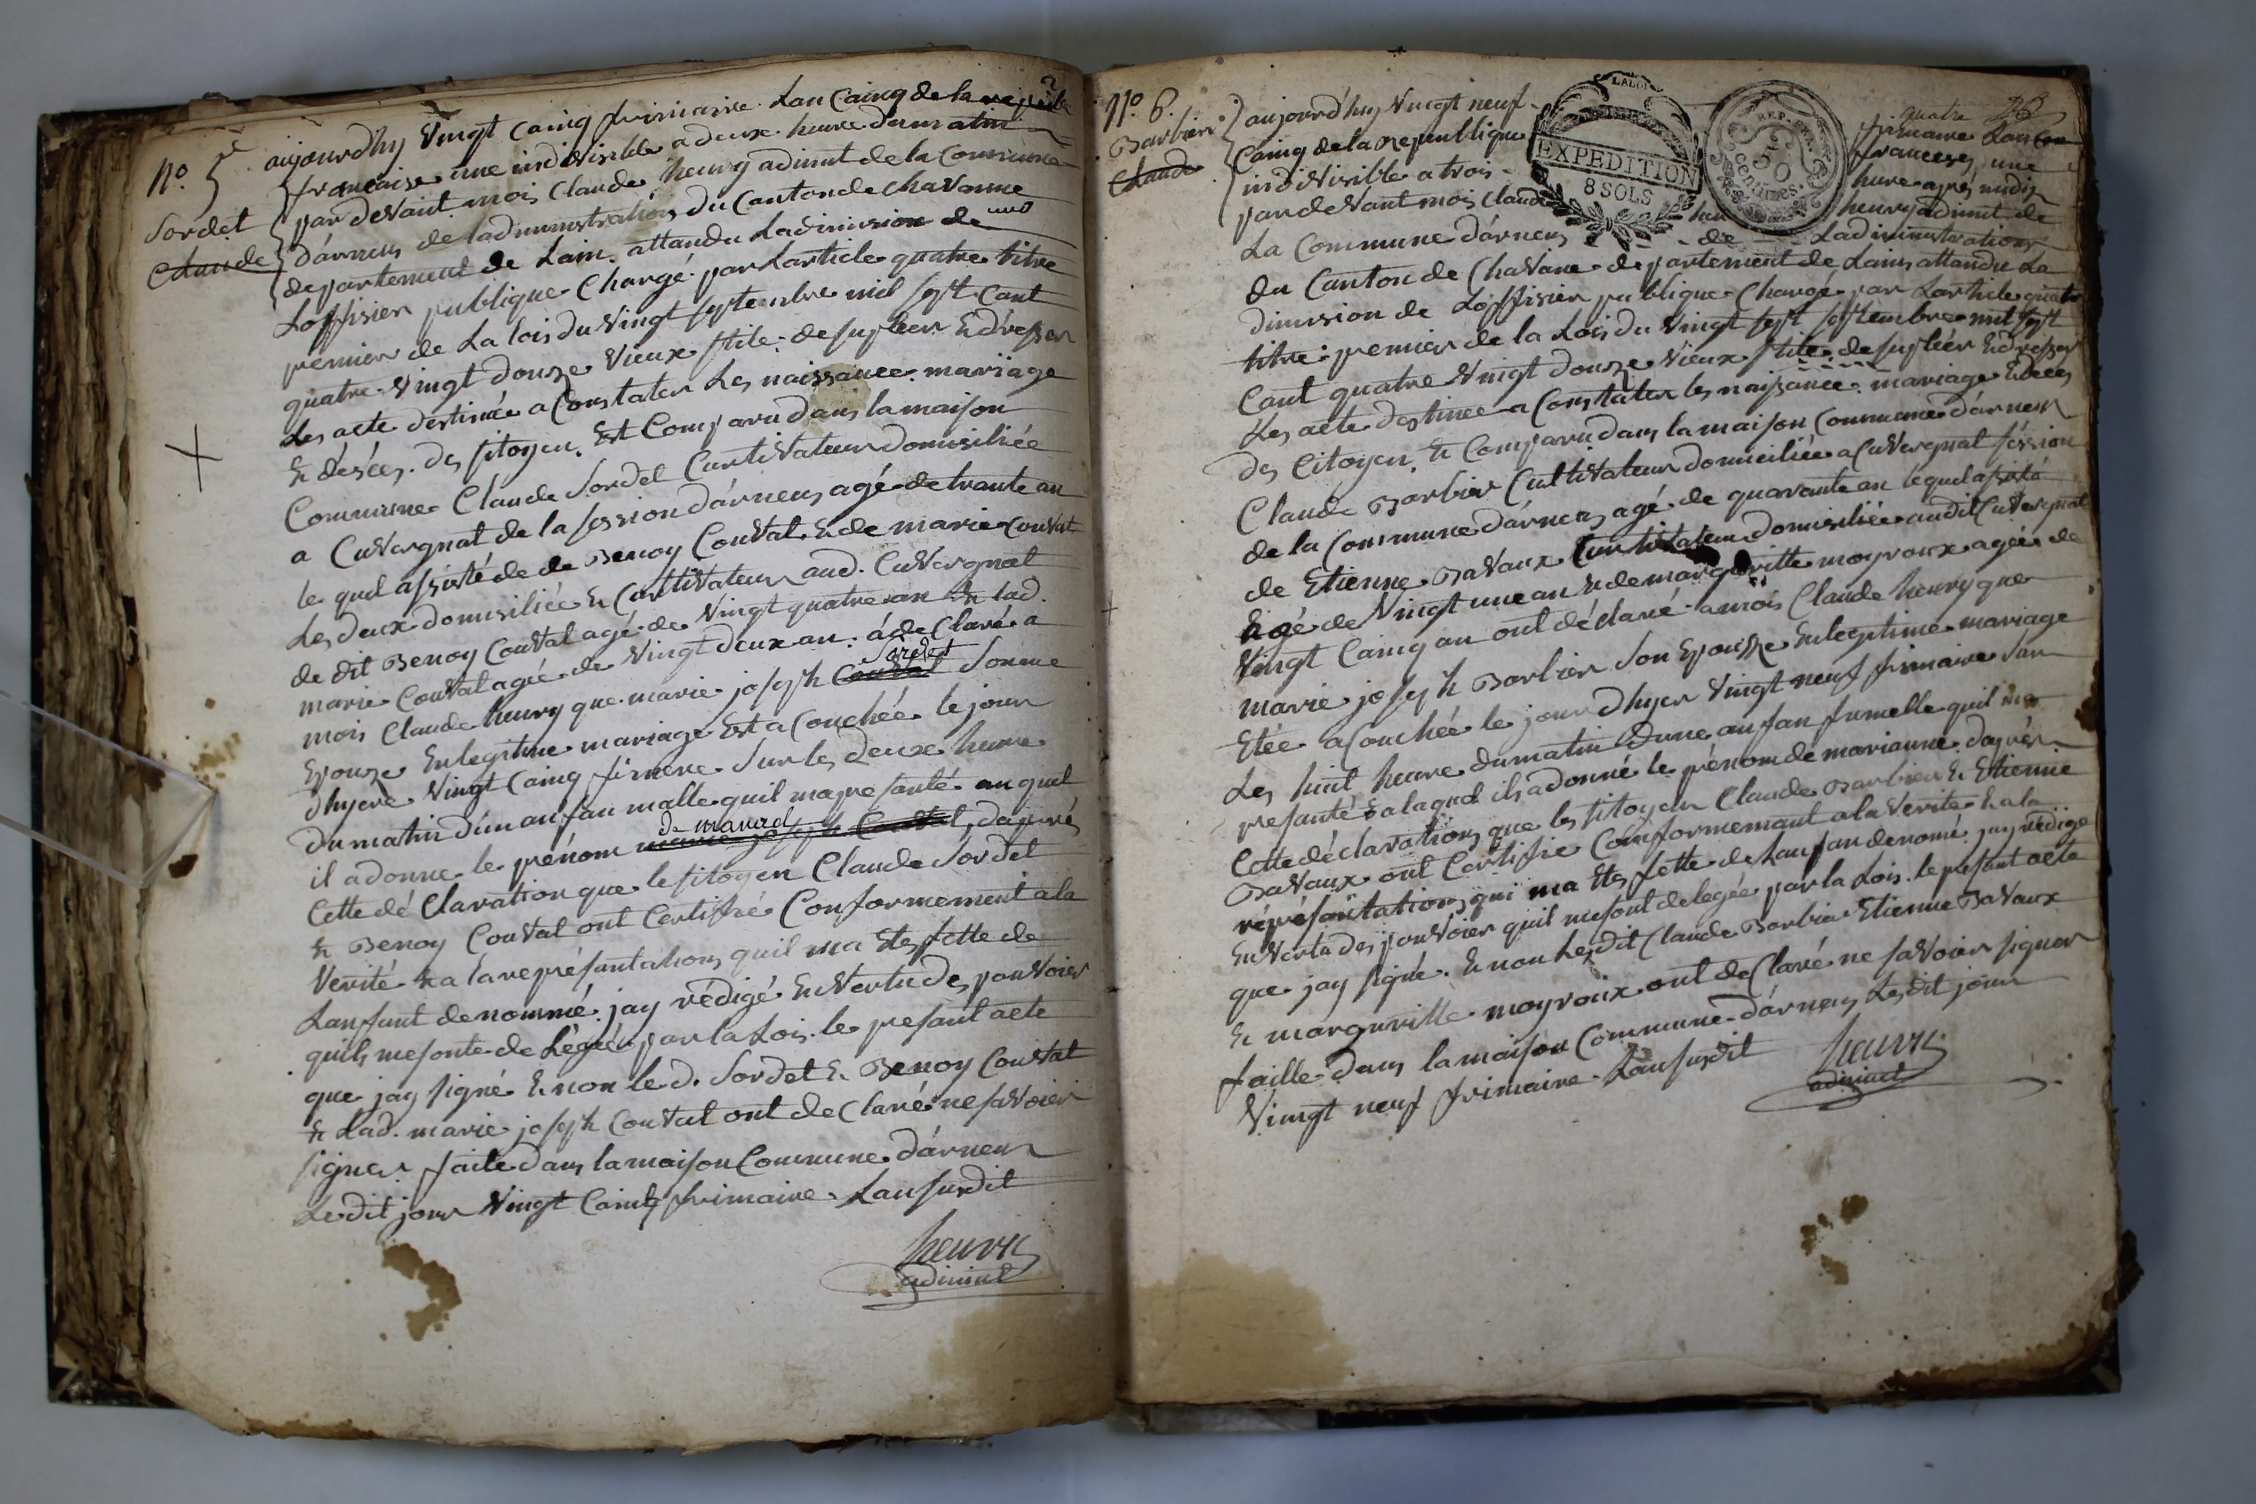 No. 5e
Sordet
Claude
aujourdhy Vingt Cainq frimaire Lan Cainq de la republi
francaise une indivisible a deux heure du matin
par devant mois Claude henry adimint de la Commune
d'arnens de ladiministration du Canton de Chavanne
departement de Lain. attandu Ladimision de
Loffisier publique Chargé par Larticle quatre titre
premier de La lois du Vingt septembre mil sept Cant
quatre Vingt douze Vieux stile de supleer Et dresser
Les acte destinée a Constater Les naissance mariage
Et désées des sitoyen. Est Comparu dans la maison
Commune Claude Sordet Cultivateur domisiliée
a Cuvergnat de la session d'arnens agé de trante an
le quel assisté de de Benoy Couvat Et de marie Couvat
Les deux domisiliée Et Cultivateur aud. Cuvergnat
de dit Benoy Couvat agé de Vingt quatre an Et lad.
marie Couvat agée de Vingt deux an. a de Claré a
mois Claude henry que marie joseph Couvat Sordet Sonne
Epouze En legitime mariage Est a Couchée le jour
dhyere Vingt Cainq firmere Sur les deux heure
du matin dun anfan malle quil ma presanté au quel
il a donne le prénom marie joseph Couvat d'aprés
Cette dé Claration que le sitoyen Claude Sordet
Et Benoy Couvat ont Certifié Conformement a la
Verité Et a la représantations quil ma Etes fette de
Lanfant denommé. jay rédigé En Vertu des pouvoier
quils mesonte de Légée par la Lois. le presant acte
que jay signé Et non le d. Sordet Et Benoy Couvat
Et Lad. marie joseph Couvat ont de Claré ne savoier
signer. faite dans la maison Commune d'arnens
Ledit jour Vingt Cainq frimaire. Lan susdit
henry
adimint
quatre 26
No. 6.
Barbier
Claude
aujourd'huy Vingt neuf frimaire Lan
Cainq de la Republique francese, une
indivisible a trois heure aprés midy
par devant mois Claude henry adimint de
La Commune d'arnens de Ladiministration
du Canton de Chavane departement de Lain attandu La
dimision de Loffisier publique Chargé par Larticle quatre
titre premier de la Lois du Vingt sept septembre mil sept
Cant quatre Vingt douze Vieux stile de supleér Et dresser
Les acte destinee a Constater les naissance mariage Et deces
des Citoyen. Et Comparu dans la maison Commune d'arnens
Claude Barbier Cultivateur domiciliée a Cuvergnat séssion
de la Commune d'arnens agé de quarante an le quel assisté
de Etienne Bavaux Cultivateur domisiliée audit Cuvergnat
agé de Vingt une an Et de margueritte moyroux agée de
Vingt Cainq an ont déclaré a mois Claude henry que
marie joseph Barbier Son Epouzze En legitime mariage
Etée acouchée le jour dhyer Vingt neuf frimaire Sur
Les huit heure du matin dune anfan fumelle quil ma
presanté Et a laquel ils a donné le prénom de marianne d'aprés
Cette déclarations que les sitoyen Claude Barbier Et Etienne
Bavaux ont Certifie Conformemant a la Verite Et a la
réprésantations qui ma Etes fette de Lanfan denomé. jay rédigé
En Vertu des pouvoier quil me sont delegée par la Lois. le presant acte
que jay signé. Et non Lesdit Claude Barbier Etienne Bavaux
Et margueritte moyroux ont de Claré ne savoier signer
faille dans la maison Commune d'arnens Lesdit jour
Vingt neuf frimaire. Lan susdit
henry
adimint
LA LOI
EXPEDITION
8 SOLS
REP. FRA.
50
centimes.